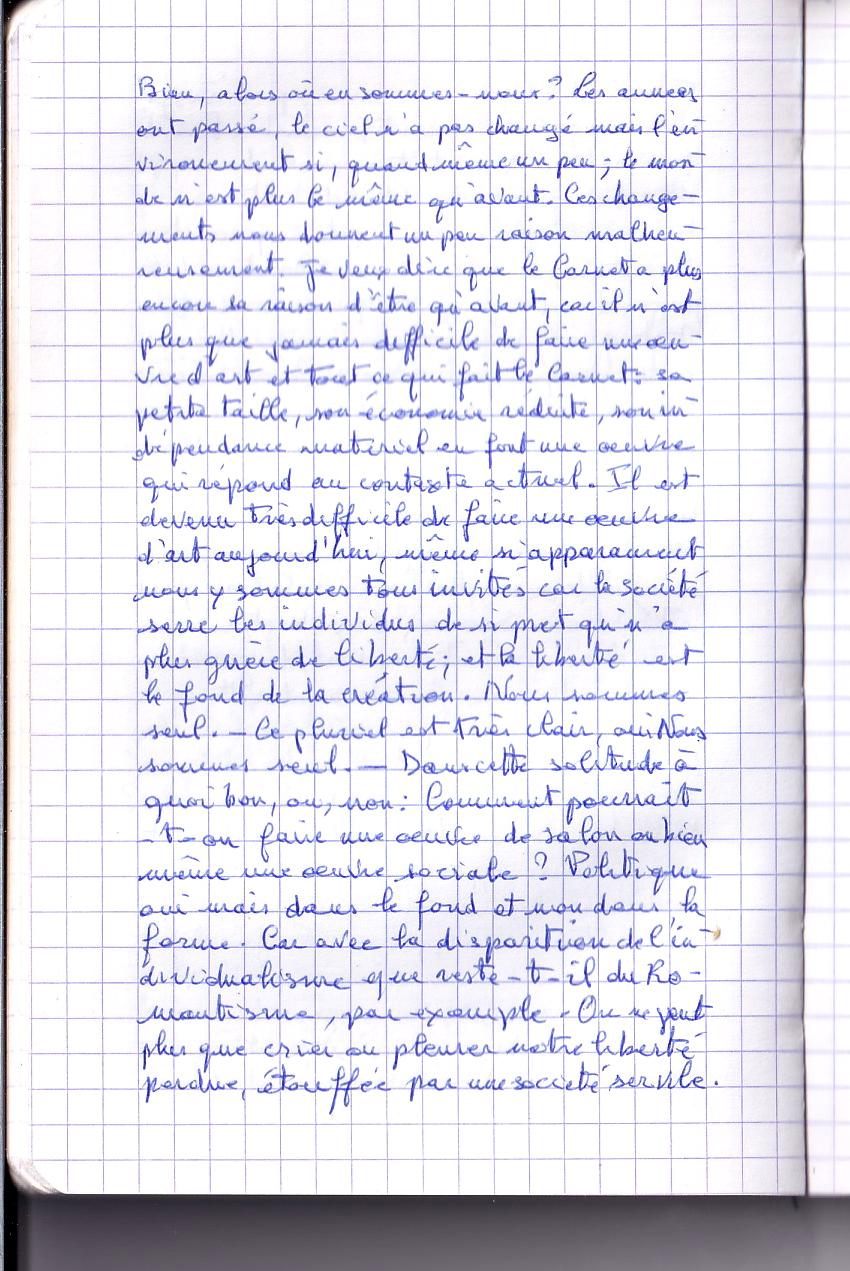 Bien, alors où en sommes-nous? Les années
ont passé, le ciel n'a pas changé mais l'en
vironnement si, quand même un peu ; le mon
de n'est plus le même qu'avant. Ces change-
ments nous donnent un peu raison malheu-
reusement. Je veux dire que le Carnet a plus
encore sa raison d'être qu'avant, car il n'est
plus que jamais difficile de faire une oeu-
vre d'art et tout ce qui fait le Carnet: sa
petite taille, son économie réduite, son in-
dépendance matériel en font une oeuvre
qui répond au contexte actuel. Il est
devenu très difficile de faire une oeuvre
d'art aujourd'hui, même si apparament
nous y sommes tous invités car la société
serre les individus de si pret qu'n'a
plus guère de liberté; et la liberté est
le fond de la création. Nous sommes
seul. — Ce pluriel est très clair, oui Nous
sommes seul. — Dans cette solitude à
quoi bon, ou, non: Comment pourrait
-t-on faire une oeuvre de salon ou bien
même une oeuvre sociale ? Politique
oui mais dans le fond et non dans la
forme. Car avec la disparition de l'in-
dividualisme que reste-t-il du Ro-
mantisme, par exemple. On ne peut
plus que crier ou pleurer notre liberté
perdue, étouffée par une société servile.